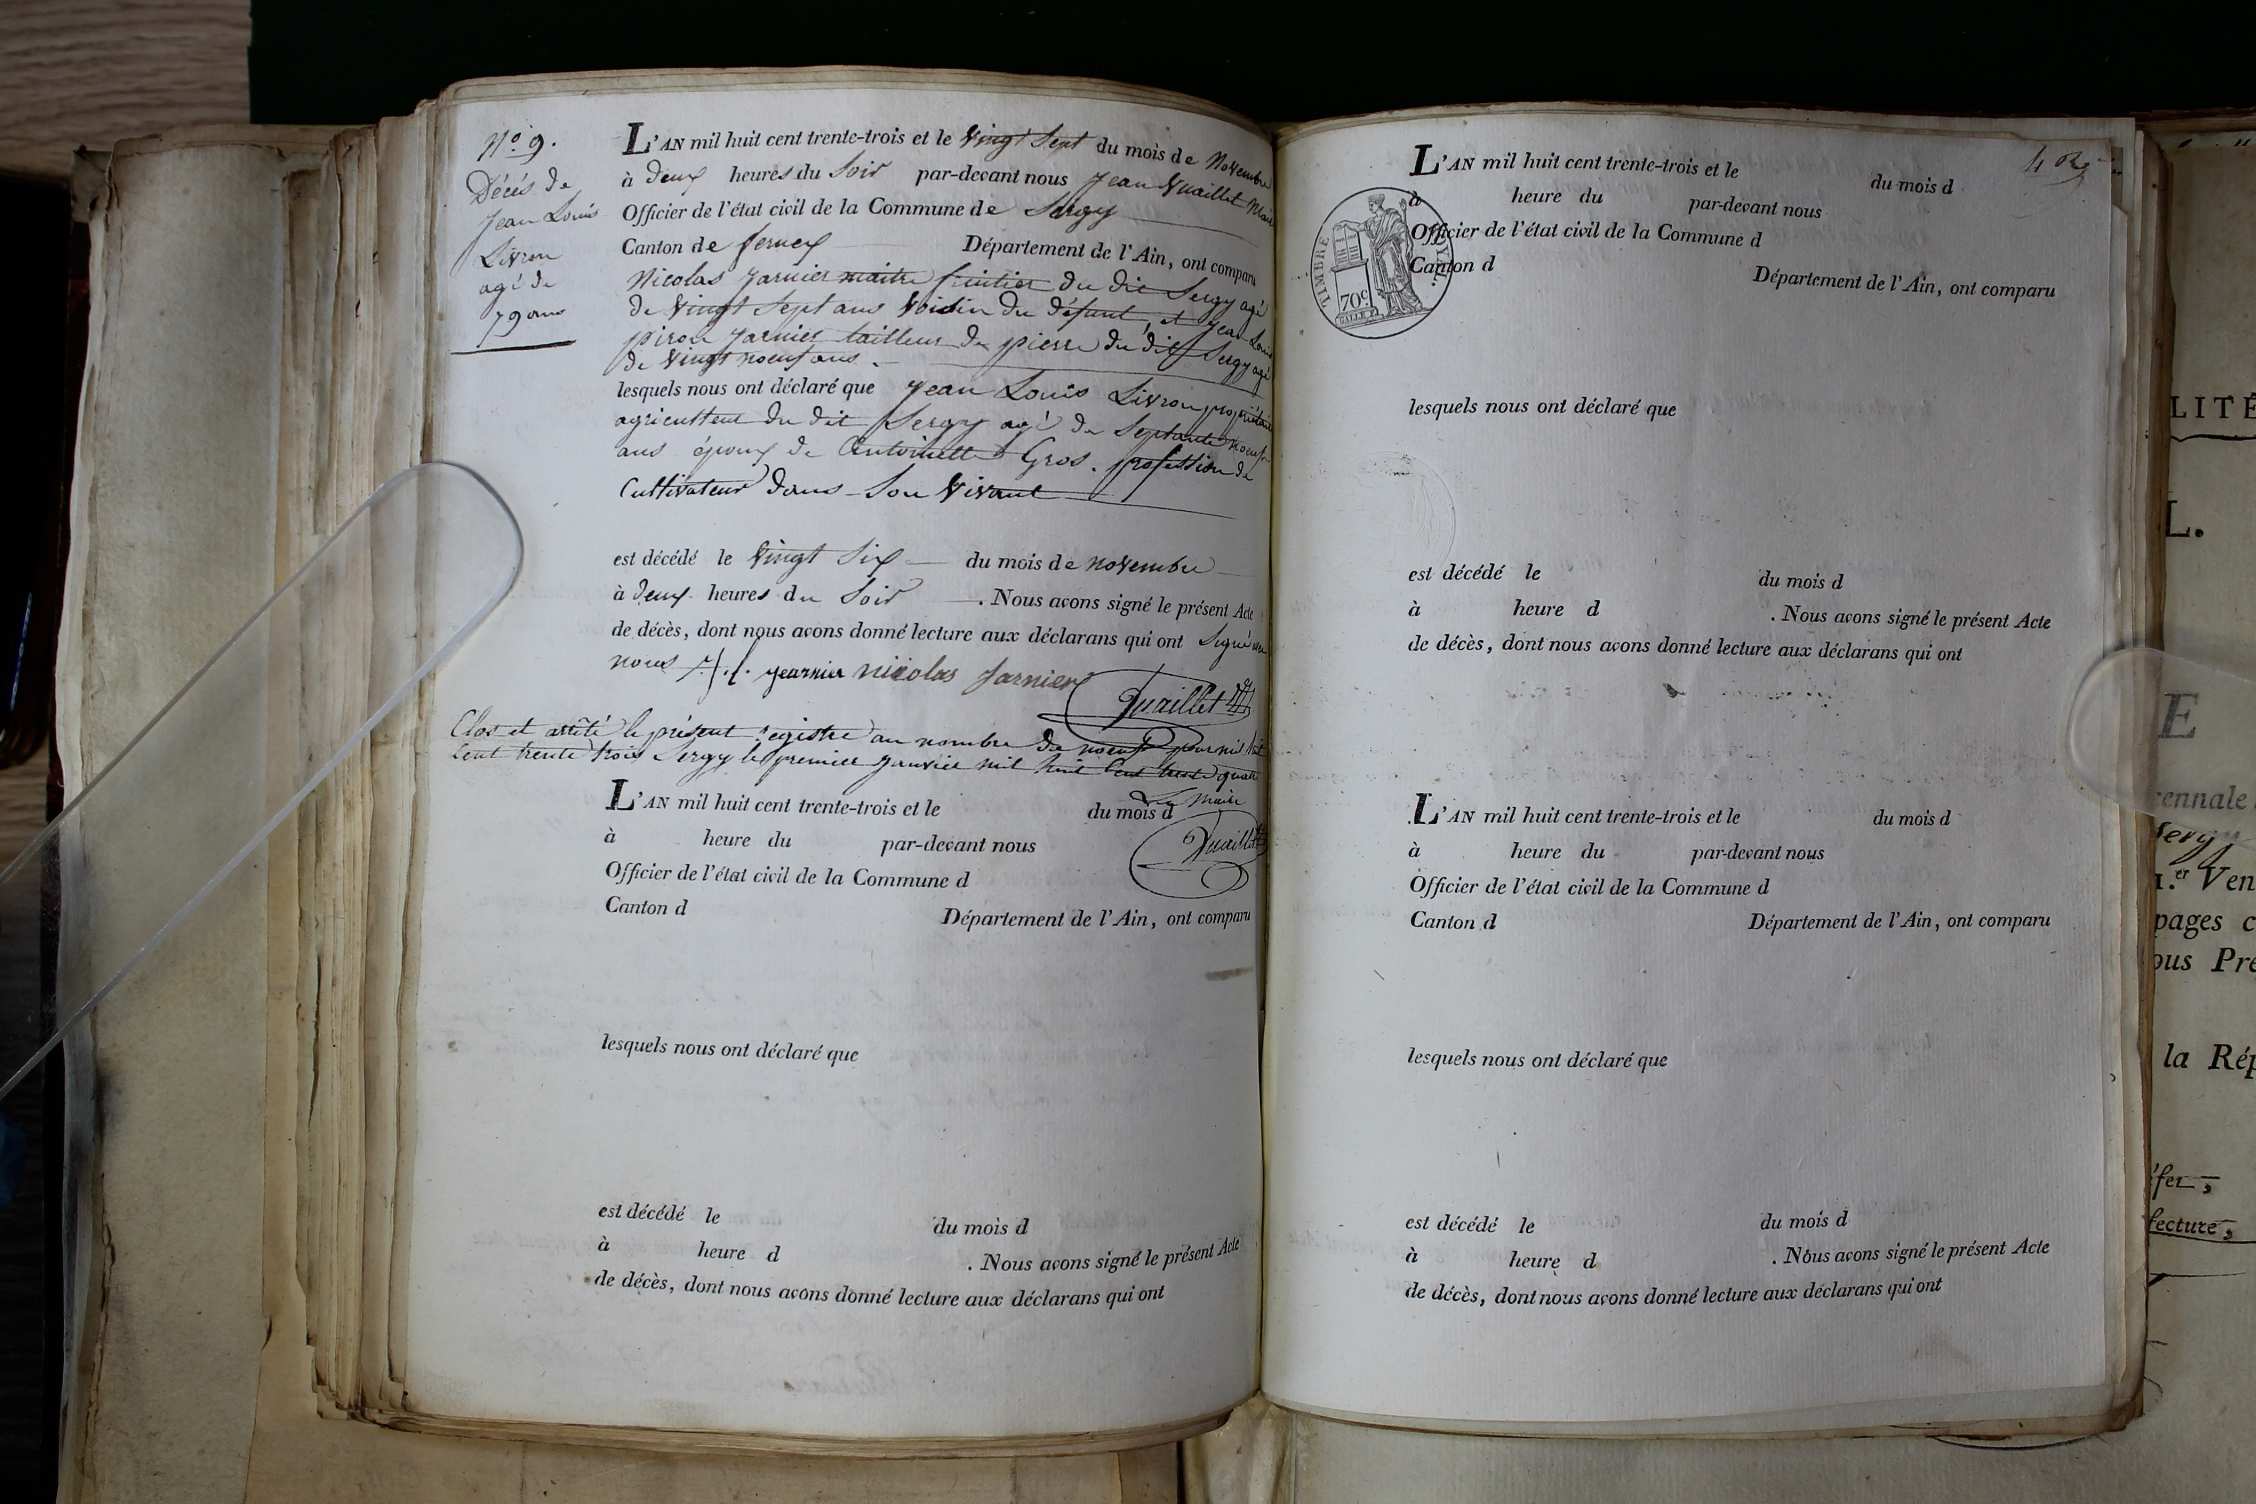 No 9.
Décés de
Jean Louis
Livron
agé de
79 ans
L'AN mil huit cent trente-trois et le Vingt Sept du mois de Novembre
à deux heures du Soir par-devant nous Jean Vuaillet Maire
Officier de l'état civil de la Commune de Sergy
Canton de ferney Département de l'Ain, ont comparu
Nicolas Jarnier maitre fruitier du dit Sergy agé
de Vingt Sept ans Voisin du défunt, et Jean Louis
piron Jarnier tailleur de pierre du dit Sergy agé
de Vingt noeuf ans.
lesquels nous ont déclaré que Jean Louis Livron propriétaire
agriculteur du dit Sergy agé de Septante noeuf
ans époux de Antoinette Gros. profession de
Cultivateur dans Son Vivant
est décédé le Vingt Six du mois de novembre
à deux heures du Soir . Nous avons signé le présent Acte
de décès, dont nous avons donné lecture aux déclarans qui ont Signé avec
nous J. l. jearnier nicolas Jarnier
Vuaillet
Clos et arrêté le présent registre au nombre de noeuf pour mil huit
Cent trente trois Sergy le premier Janvier mil huit Cent trente quatre
Le Maire
Vuaillet
L'AN mil huit cent trente-trois et le du mois d
à heure du par-devant nous
Officier de l'état civil de la Commune d
Canton d Département de l'Ain, ont comparu
lesquels nous ont déclaré que
est décédé le du mois d
à heure d . Nous avons signé le présent Acte
de décès, dont nous avons donné lecture aux déclarans qui ont
TIMBRE ROYAL.
70c
L'AN mil huit cent trente-trois et le du mois d
à heure du par-devant nous
Officier de l'état civil de la Commune d
Canton d Département de l'Ain, ont comparu
lesquels nous ont déclaré que
est décédé le du mois d
à heure d . Nous avons signé le présent Acte
de décès, dont nous avons donné lecture aux déclarans qui ont
L'AN mil huit cent trente-trois et le du mois d
à heure du par-devant nous
Officier de l'état civil de la Commune d
Canton d Département de l'Ain, ont comparu
lesquels nous ont déclaré que
est décédé le du mois d
à heure d . Nous avons signé le présent Acte
de décès, dont nous avons donné lecture aux déclarans qui ont
LITÉ
L.
E
cennale
Sergy
1.er Ven
pages c
ous Pré
la Rép
fet,
fecture,